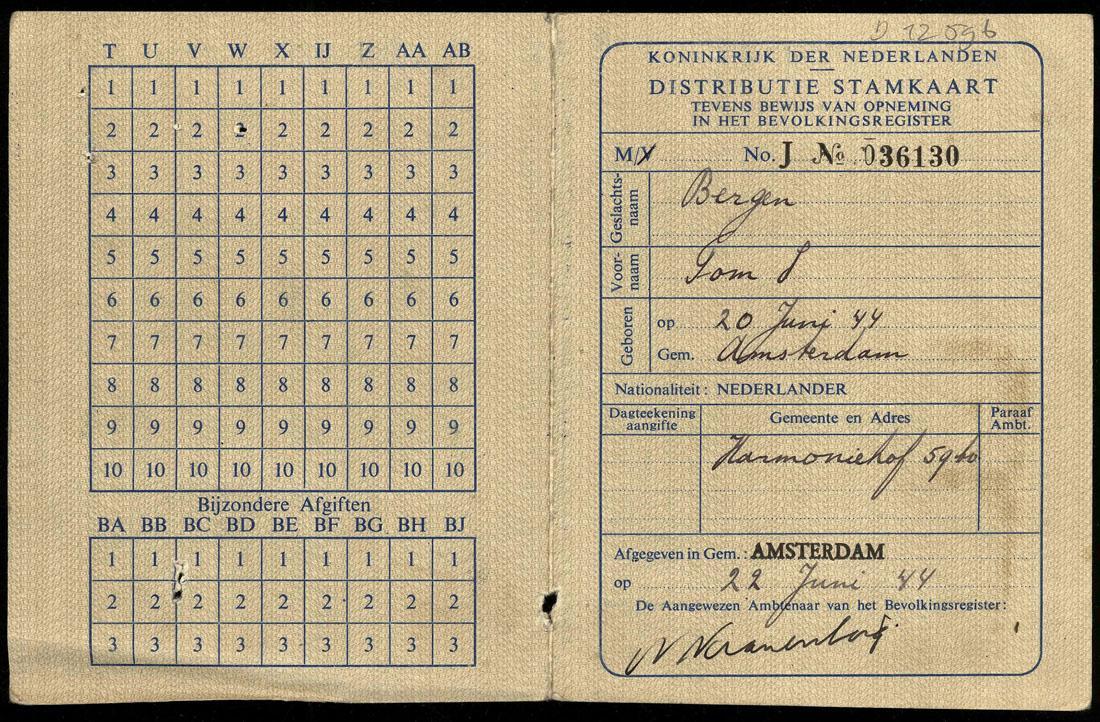 T U V W X IJ Z AA AB
1 1 1 1 1 1 1 1 1
2 2 2 2 2 2 2 2 2
3 3 3 3 3 3 3 3 3
4 4 4 4 4 4 4 4 4
5 5 5 5 5 5 5 5 5
6 6 6 6 6 6 6 6 6
7 7 7 7 7 7 7 7 7
8 8 8 8 8 8 8 8 8
9 9 9 9 9 9 9 9 9
10 10 10 10 10 10 10 10 10
Bijzondere Afgiften
BA BB BC BD BE BF BG BH BJ
1 1 1 1 1 1 1 1 1
2 2 2 2 2 2 2 2 2
3 3 3 3 3 3 3 3 3
KONINKRIJK DER NEDERLANDEN
DISTRIBUTIE STAMKAART
TEVENS BEWIJS VAN OPNEMING
IN HET BEVOLKINGSREGISTER
M/V No. J No 036130
Geslachts-
naam
Bergen
Voor-
naam
Tom
Geboren
op 20 Juni 44
Gem. Amsterdam
Nationaliteit: NEDERLANDER
Dagteekening
aangifte
Gemeente en Adres
Paraaf
Ambt.
Harmoniehof 59
Afgegeven in Gem.: AMSTERDAM
op 22 Juni 44
De Aangewezen Ambtenaar van het Bevolkingsregister: